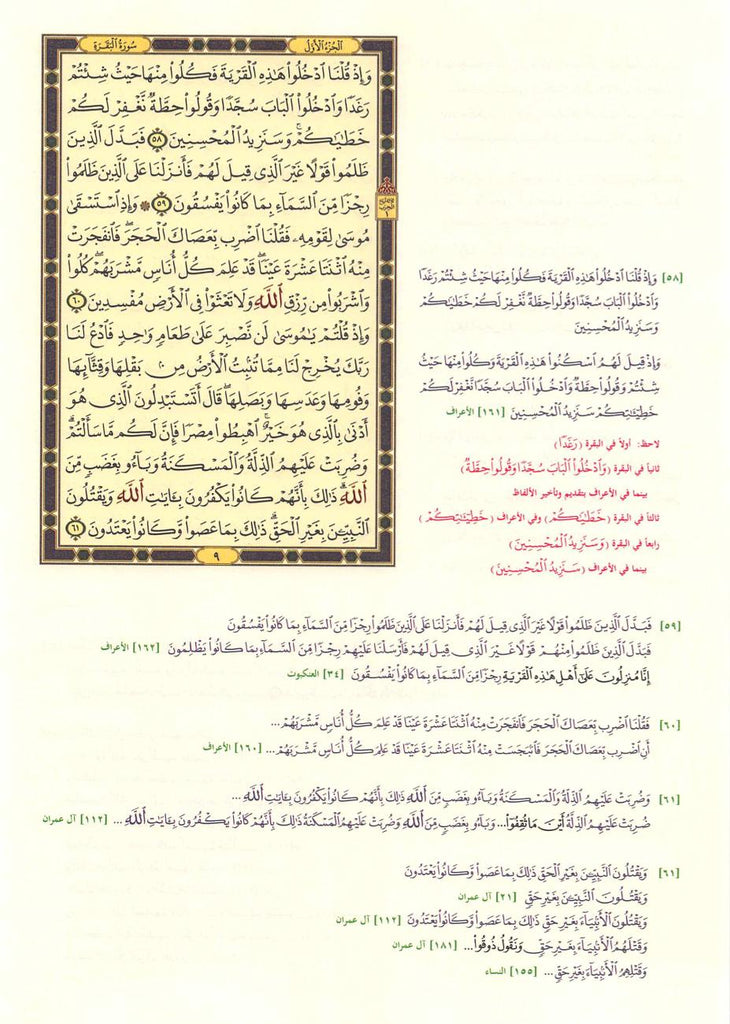 سُورَةُ البَقَرَةِ
الجُزءُ الأَوَّلُ
وَإِذْ قُلْنَا ٱدْخُلُوا۟ هَٰذِهِ ٱلْقَرْيَةَ فَكُلُوا۟ مِنْهَا حَيْثُ شِئْتُمْ
رَغَدًا وَٱدْخُلُوا۟ ٱلْبَابَ سُجَّدًا وَقُولُوا۟ حِطَّةٌ نَّغْفِرْ لَكُمْ
خَطَٰيَٰكُمْ ۚ وَسَنَزِيدُ ٱلْمُحْسِنِينَ ٥٨ فَبَدَّلَ ٱلَّذِينَ
ظَلَمُوا۟ قَوْلًا غَيْرَ ٱلَّذِى قِيلَ لَهُمْ فَأَنزَلْنَا عَلَى ٱلَّذِينَ ظَلَمُوا۟
رِجْزًا مِّنَ ٱلسَّمَآءِ بِمَا كَانُوا۟ يَفْسُقُونَ ٥٩ ۞ وَإِذِ ٱسْتَسْقَىٰ
مُوسَىٰ لِقَوْمِهِۦ فَقُلْنَا ٱضْرِب بِّعَصَاكَ ٱلْحَجَرَ ۖ فَٱنفَجَرَتْ
مِنْهُ ٱثْنَتَا عَشْرَةَ عَيْنًا ۖ قَدْ عَلِمَ كُلُّ أُنَاسٍ مَّشْرَبَهُمْ ۖ كُلُوا۟
وَٱشْرَبُوا۟ مِن رِّزْقِ ٱللَّهِ وَلَا تَعْثَوْا۟ فِى ٱلْأَرْضِ مُفْسِدِينَ ٦٠
وَإِذْ قُلْتُمْ يَٰمُوسَىٰ لَن نَّصْبِرَ عَلَىٰ طَعَامٍ وَٰحِدٍ فَٱدْعُ لَنَا
رَبَّكَ يُخْرِجْ لَنَا مِمَّا تُنۢبِتُ ٱلْأَرْضُ مِنۢ بَقْلِهَا وَقِثَّآئِهَا
وَفُومِهَا وَعَدَسِهَا وَبَصَلِهَا ۖ قَالَ أَتَسْتَبْدِلُونَ ٱلَّذِى هُوَ
أَدْنَىٰ بِٱلَّذِى هُوَ خَيْرٌ ۚ ٱهْبِطُوا۟ مِصْرًا فَإِنَّ لَكُم مَّا سَأَلْتُمْ ۗ
وَضُرِبَتْ عَلَيْهِمُ ٱلذِّلَّةُ وَٱلْمَسْكَنَةُ وَبَآءُو بِغَضَبٍ مِّنَ
ٱللَّهِ ۗ ذَٰلِكَ بِأَنَّهُمْ كَانُوا۟ يَكْفُرُونَ بِـَٔايَٰتِ ٱللَّهِ وَيَقْتُلُونَ
ٱلنَّبِيِّـۧنَ بِغَيْرِ ٱلْحَقِّ ۗ ذَٰلِكَ بِمَا عَصَوا۟ وَّكَانُوا۟ يَعْتَدُونَ ٦١
٩
[٥٨] وَإِذْ قُلْنَا ٱدْخُلُوا۟ هَٰذِهِ ٱلْقَرْيَةَ فَكُلُوا۟ مِنْهَا حَيْثُ شِئْتُمْ رَغَدًا
وَٱدْخُلُوا۟ ٱلْبَابَ سُجَّدًا وَقُولُوا۟ حِطَّةٌ نَّغْفِرْ لَكُمْ خَطَٰيَٰكُمْ
وَسَنَزِيدُ ٱلْمُحْسِنِينَ
وَإِذْ قِيلَ لَهُمُ ٱسْكُنُوا۟ هَٰذِهِ ٱلْقَرْيَةَ وَكُلُوا۟ مِنْهَا حَيْثُ
شِئْتُمْ وَقُولُوا۟ حِطَّةٌ وَٱدْخُلُوا۟ ٱلْبَابَ سُجَّدًا نَّغْفِرْ لَكُمْ
خَطِيٓـَٰٔتِكُمْ سَنَزِيدُ ٱلْمُحْسِنِينَ [١٦١] الأعراف
لاحظ: أولاً في البقرة (رَغَدًا)
ثانياً في البقرة (وَٱدْخُلُوا۟ ٱلْبَابَ سُجَّدًا وَقُولُوا۟ حِطَّةٌ)
بينما في الأعراف بتقديم وتأخير الألفاظ
ثالثاً في البقرة (خَطَٰيَٰكُمْ) وفي الأعراف (خَطِيٓـَٰٔتِكُمْ)
رابعاً في البقرة (وَسَنَزِيدُ ٱلْمُحْسِنِينَ)
بينما في الأعراف (سَنَزِيدُ ٱلْمُحْسِنِينَ)
[٥٩] فَبَدَّلَ ٱلَّذِينَ ظَلَمُوا۟ قَوْلًا غَيْرَ ٱلَّذِى قِيلَ لَهُمْ فَأَنزَلْنَا عَلَى ٱلَّذِينَ ظَلَمُوا۟ رِجْزًا مِّنَ ٱلسَّمَآءِ بِمَا كَانُوا۟ يَفْسُقُونَ
فَبَدَّلَ ٱلَّذِينَ ظَلَمُوا۟ مِنْهُمْ قَوْلًا غَيْرَ ٱلَّذِى قِيلَ لَهُمْ فَأَرْسَلْنَا عَلَيْهِمْ رِجْزًا مِّنَ ٱلسَّمَآءِ بِمَا كَانُوا۟ يَظْلِمُونَ [١٦٢] الأعراف
إِنَّا مُنزِلُونَ عَلَىٰٓ أَهْلِ هَٰذِهِ ٱلْقَرْيَةِ رِجْزًا مِّنَ ٱلسَّمَآءِ بِمَا كَانُوا۟ يَفْسُقُونَ [٣٤] العنكبوت
[٦٠] فَقُلْنَا ٱضْرِب بِّعَصَاكَ ٱلْحَجَرَ فَٱنفَجَرَتْ مِنْهُ ٱثْنَتَا عَشْرَةَ عَيْنًا قَدْ عَلِمَ كُلُّ أُنَاسٍ مَّشْرَبَهُمْ...
أَنِ ٱضْرِب بِّعَصَاكَ ٱلْحَجَرَ فَٱنۢبَجَسَتْ مِنْهُ ٱثْنَتَا عَشْرَةَ عَيْنًا قَدْ عَلِمَ كُلُّ أُنَاسٍ مَّشْرَبَهُمْ... [١٦٠] الأعراف
[٦١] وَضُرِبَتْ عَلَيْهِمُ ٱلذِّلَّةُ وَٱلْمَسْكَنَةُ وَبَآءُو بِغَضَبٍ مِّنَ ٱللَّهِ ذَٰلِكَ بِأَنَّهُمْ كَانُوا۟ يَكْفُرُونَ بِـَٔايَٰتِ ٱللَّهِ...
ضُرِبَتْ عَلَيْهِمُ ٱلذِّلَّةُ أَيْنَ مَا ثُقِفُوٓا۟... وَبَآءُو بِغَضَبٍ مِّنَ ٱللَّهِ وَضُرِبَتْ عَلَيْهِمُ ٱلْمَسْكَنَةُ ذَٰلِكَ بِأَنَّهُمْ كَانُوا۟ يَكْفُرُونَ بِـَٔايَٰتِ ٱللَّهِ... [١١٢] آل عمران
[٦١] وَيَقْتُلُونَ ٱلنَّبِيِّـۧنَ بِغَيْرِ ٱلْحَقِّ ذَٰلِكَ بِمَا عَصَوا۟ وَّكَانُوا۟ يَعْتَدُونَ
وَيَقْتُلُونَ ٱلنَّبِيِّـۧنَ بِغَيْرِ حَقٍّ [٢١] آل عمران
وَيَقْتُلُونَ ٱلْأَنۢبِيَآءَ بِغَيْرِ حَقٍّ ذَٰلِكَ بِمَا عَصَوا۟ وَّكَانُوا۟ يَعْتَدُونَ [١١٢] آل عمران
وَقَتْلَهُمُ ٱلْأَنۢبِيَآءَ بِغَيْرِ حَقٍّ وَنَقُولُ ذُوقُوا۟... [١٨١] آل عمران
وَقَتْلِهِمُ ٱلْأَنۢبِيَآءَ بِغَيْرِ حَقٍّ... [١٥٥] النساء